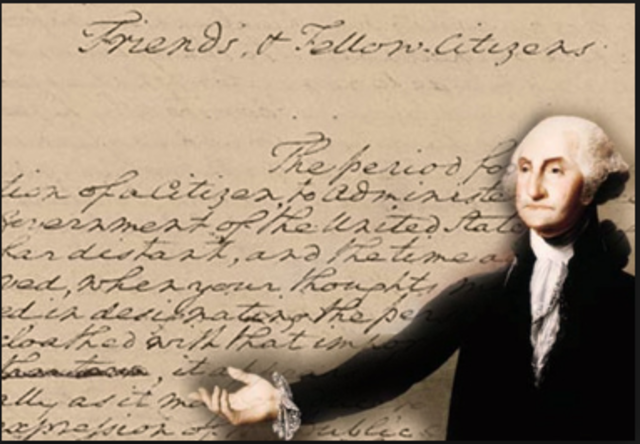 Friends, & Fellow-Citizens
The period fo
tion of a Citizen, to administe
Government of the United State
far distant, and the time a
ved, when your thoughts
ed in designating the per
cloathed with that impo
, it ap
ally, as it ma
expression of public